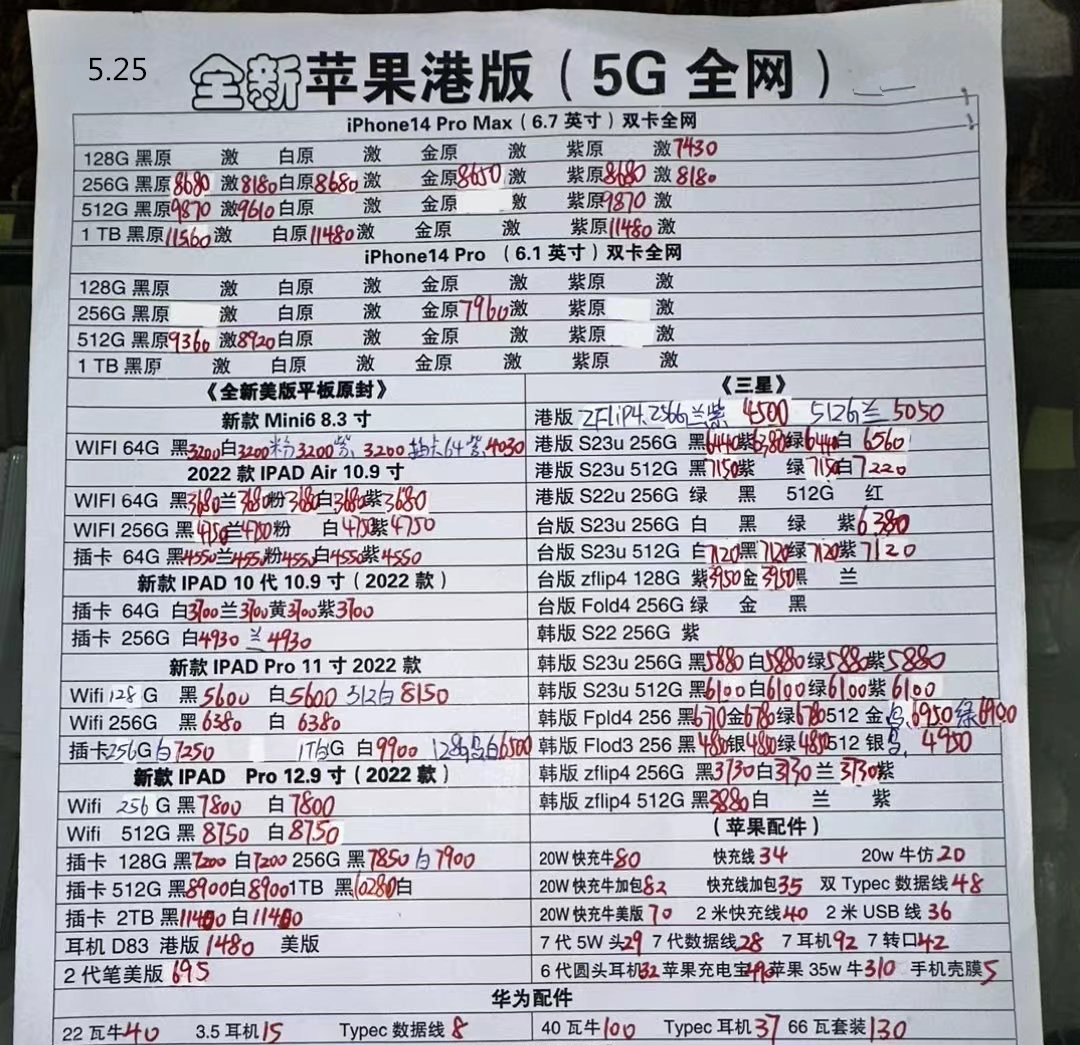 5.25
全新苹果港版（5G 全网）
iPhone14 Pro Max（6.7 英寸）双卡全网
128G 黑原 激 白原 激 金原 激 紫原 激7430
256G 黑原8680 激8180白原8680激 金原8650激 紫原8680 激 8180
512G 黑原9870 激9610白原 激 金原 激 紫原9870 激
1 TB 黑原11560激 白原11480激 金原 激 紫原11480 激
iPhone14 Pro （6.1 英寸）双卡全网
128G 黑原 激 白原 激 金原 激 紫原 激
256G 黑原 激 白原 激 金原7960激 紫原 激
512G 黑原9360 激8920白原 激 金原 激 紫原 激
1 TB 黑原 激 白原 激 金原 激 紫原 激
《全新美版平板原封》
新款 Mini6 8.3 寸
WIFI 64G 黑3200白3200粉3200紫 3200插卡64紫 4030
2022 款 IPAD Air 10.9 寸
WIFI 64G 黑3680兰3680粉3680白3680紫3680
WIFI 256G 黑4750兰4750粉 白4750紫4750
插卡 64G 黑4550兰4550粉4550白4550紫4550
新款 IPAD 10 代 10.9 寸（2022 款）
插卡 64G 白3700兰3700黄3700紫3700
插卡 256G 白4930 兰4930
新款 IPAD Pro 11 寸 2022 款
Wifi 128 G 黑5600 白5600 512白8150
Wifi 256G 黑6380 白 6380
插卡256G白7250 1TBG 白9900 128黑白6500
新款 IPAD Pro 12.9 寸（2022 款）
Wifi 256 G 黑7800 白7800
Wifi 512G 黑 8750 白8750
插卡 128G 黑7200 白7200 256G 黑7850 白7900
插卡 512G 黑8900白89001TB 黑10280白
插卡 2TB 黑11400 白11400
耳机 D83 港版1480 美版
2 代笔美版 695
《三星》
港版 ZFliP4.256G兰紫 4500 512G兰 5050
港版 S23u 256G 黑6440紫6380绿6440白 6560
港版 S23u 512G 黑7150紫 绿7150白7220
港版 S22u 256G 绿 黑 512G 红
台版 S23u 256G 白 黑 绿 紫6380
台版 S23u 512G 白7120黑7120绿7120紫7120
台版 zflip4 128G 紫3950金3950黑 兰
台版 Fold4 256G 绿 金 黑
韩版 S22 256G 紫
韩版 S23u 256G 黑5880 白5880绿5880紫5880
韩版 S23u 512G 黑6100白6100绿6100紫6100
韩版 Fpld4 256 黑6710金6780绿6780512 金 6950绿6900
韩版 Flod3 256 黑4850银4850绿4850512 银 4950
韩版 zflip4 256G 黑3730白3730 兰3730紫
韩版 zflip4 512G 黑3880白 兰 紫
（苹果配件）
20W 快充牛80 快充线34 20w 牛仿20
20W 快充牛加包82 快充线加包35 双 Typec 数据线48
20W 快充牛美版70 2 米快充线40 2 米 USB 线36
7 代 5W 头29 7 代数据线28 7 耳机92 7 转口42
6 代圆头耳机32 苹果充电宝290苹果 35w 牛310 手机壳膜5
华为配件
22 瓦牛40 3.5 耳机15 Typec 数据线 8 40 瓦牛100 Typec 耳机37 66 瓦套装130